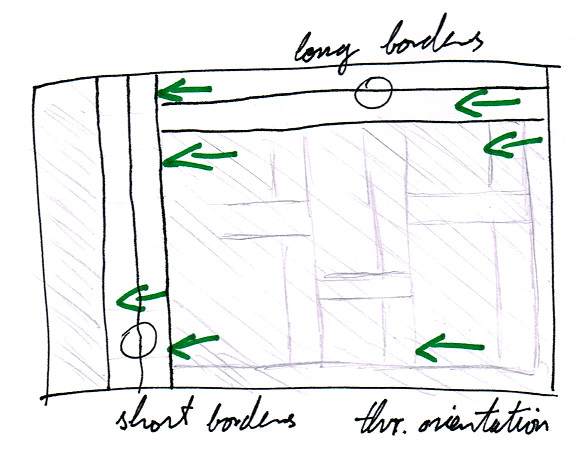 long borders
short borders
thr. orientation